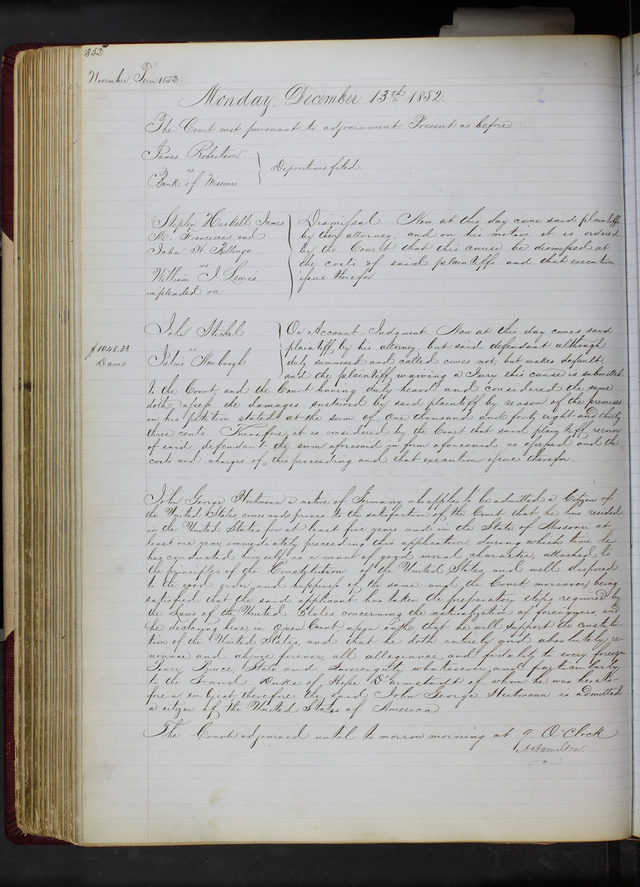 352
November Term 1852.
Monday December 13th, 1852.
The Court met pursuant to adjournment Present as before
James Robertson
vs
Bank of Missouri
Depositions filed.
Stephen Haskell James
M. Franciscus and
John H.
vs
William J. Lewis,
impleaded &c
Dismissal Now at this day come said plaintiffs
by their attorney, and on his motion it is ordered
by the Court that this cause be dismissed at
the costs of said plaintiffs and that execution
issue therefor
$1048.33
Dams
John Stickel
vs
Julius Newburgh
On Account Judgment Now at this day comes said
plaintiff by his attorney, but said defendant although
duly summoned and called comes not, but makes default;
and the plaintiff waiving a Jury this cause is submitted
to the Court, and the Court having duly heard and considered the same
doth assess the damages sustained by said plaintiff by reason of the premises
in his petition stated at the sum of One thousand and forty eight and thirty
three cents. Therefore it is considered by the Court that said plaintiff recover
of said defendant the sum aforesaid in form aforesaid as assessed and the
costs and charges of this proceeding and that execution issue therefor.
John George a native of Germany who applies to be admitted a Citizen of
the United States comes and proves to the satisfaction of the Court that he has resided
in the United States for at least five years and in the State of Missouri at
least one year immediately preceeding this application, during which time he
has conducted himself as a man of good moral character, attached to
the principles of the Constitution of the United States, and well disposed
to the good order and happiness of the same and the Court moreover being
satisfied that the said applicant has taken the preparatory steps required by
the Laws of the United States concerning the naturalization of foreigners, and
he declaring here in Open Court upon oath that he will support the constitu-
tion of the United States, and that he doth entirely and absolutely re-
nounce and abjure forever all allegiance and fidelity to every foreign
Power, Prince, State and Sovereignty whatsoever and particularly
to the Grand Duke of Hesse D'armstadt of whom he was hereto-
fore a subject, therefore the said John George is admitted
a citizen of the United States of America
The Court adjourned until tomorrow morning at 9 O'Clock
A. Hamilton